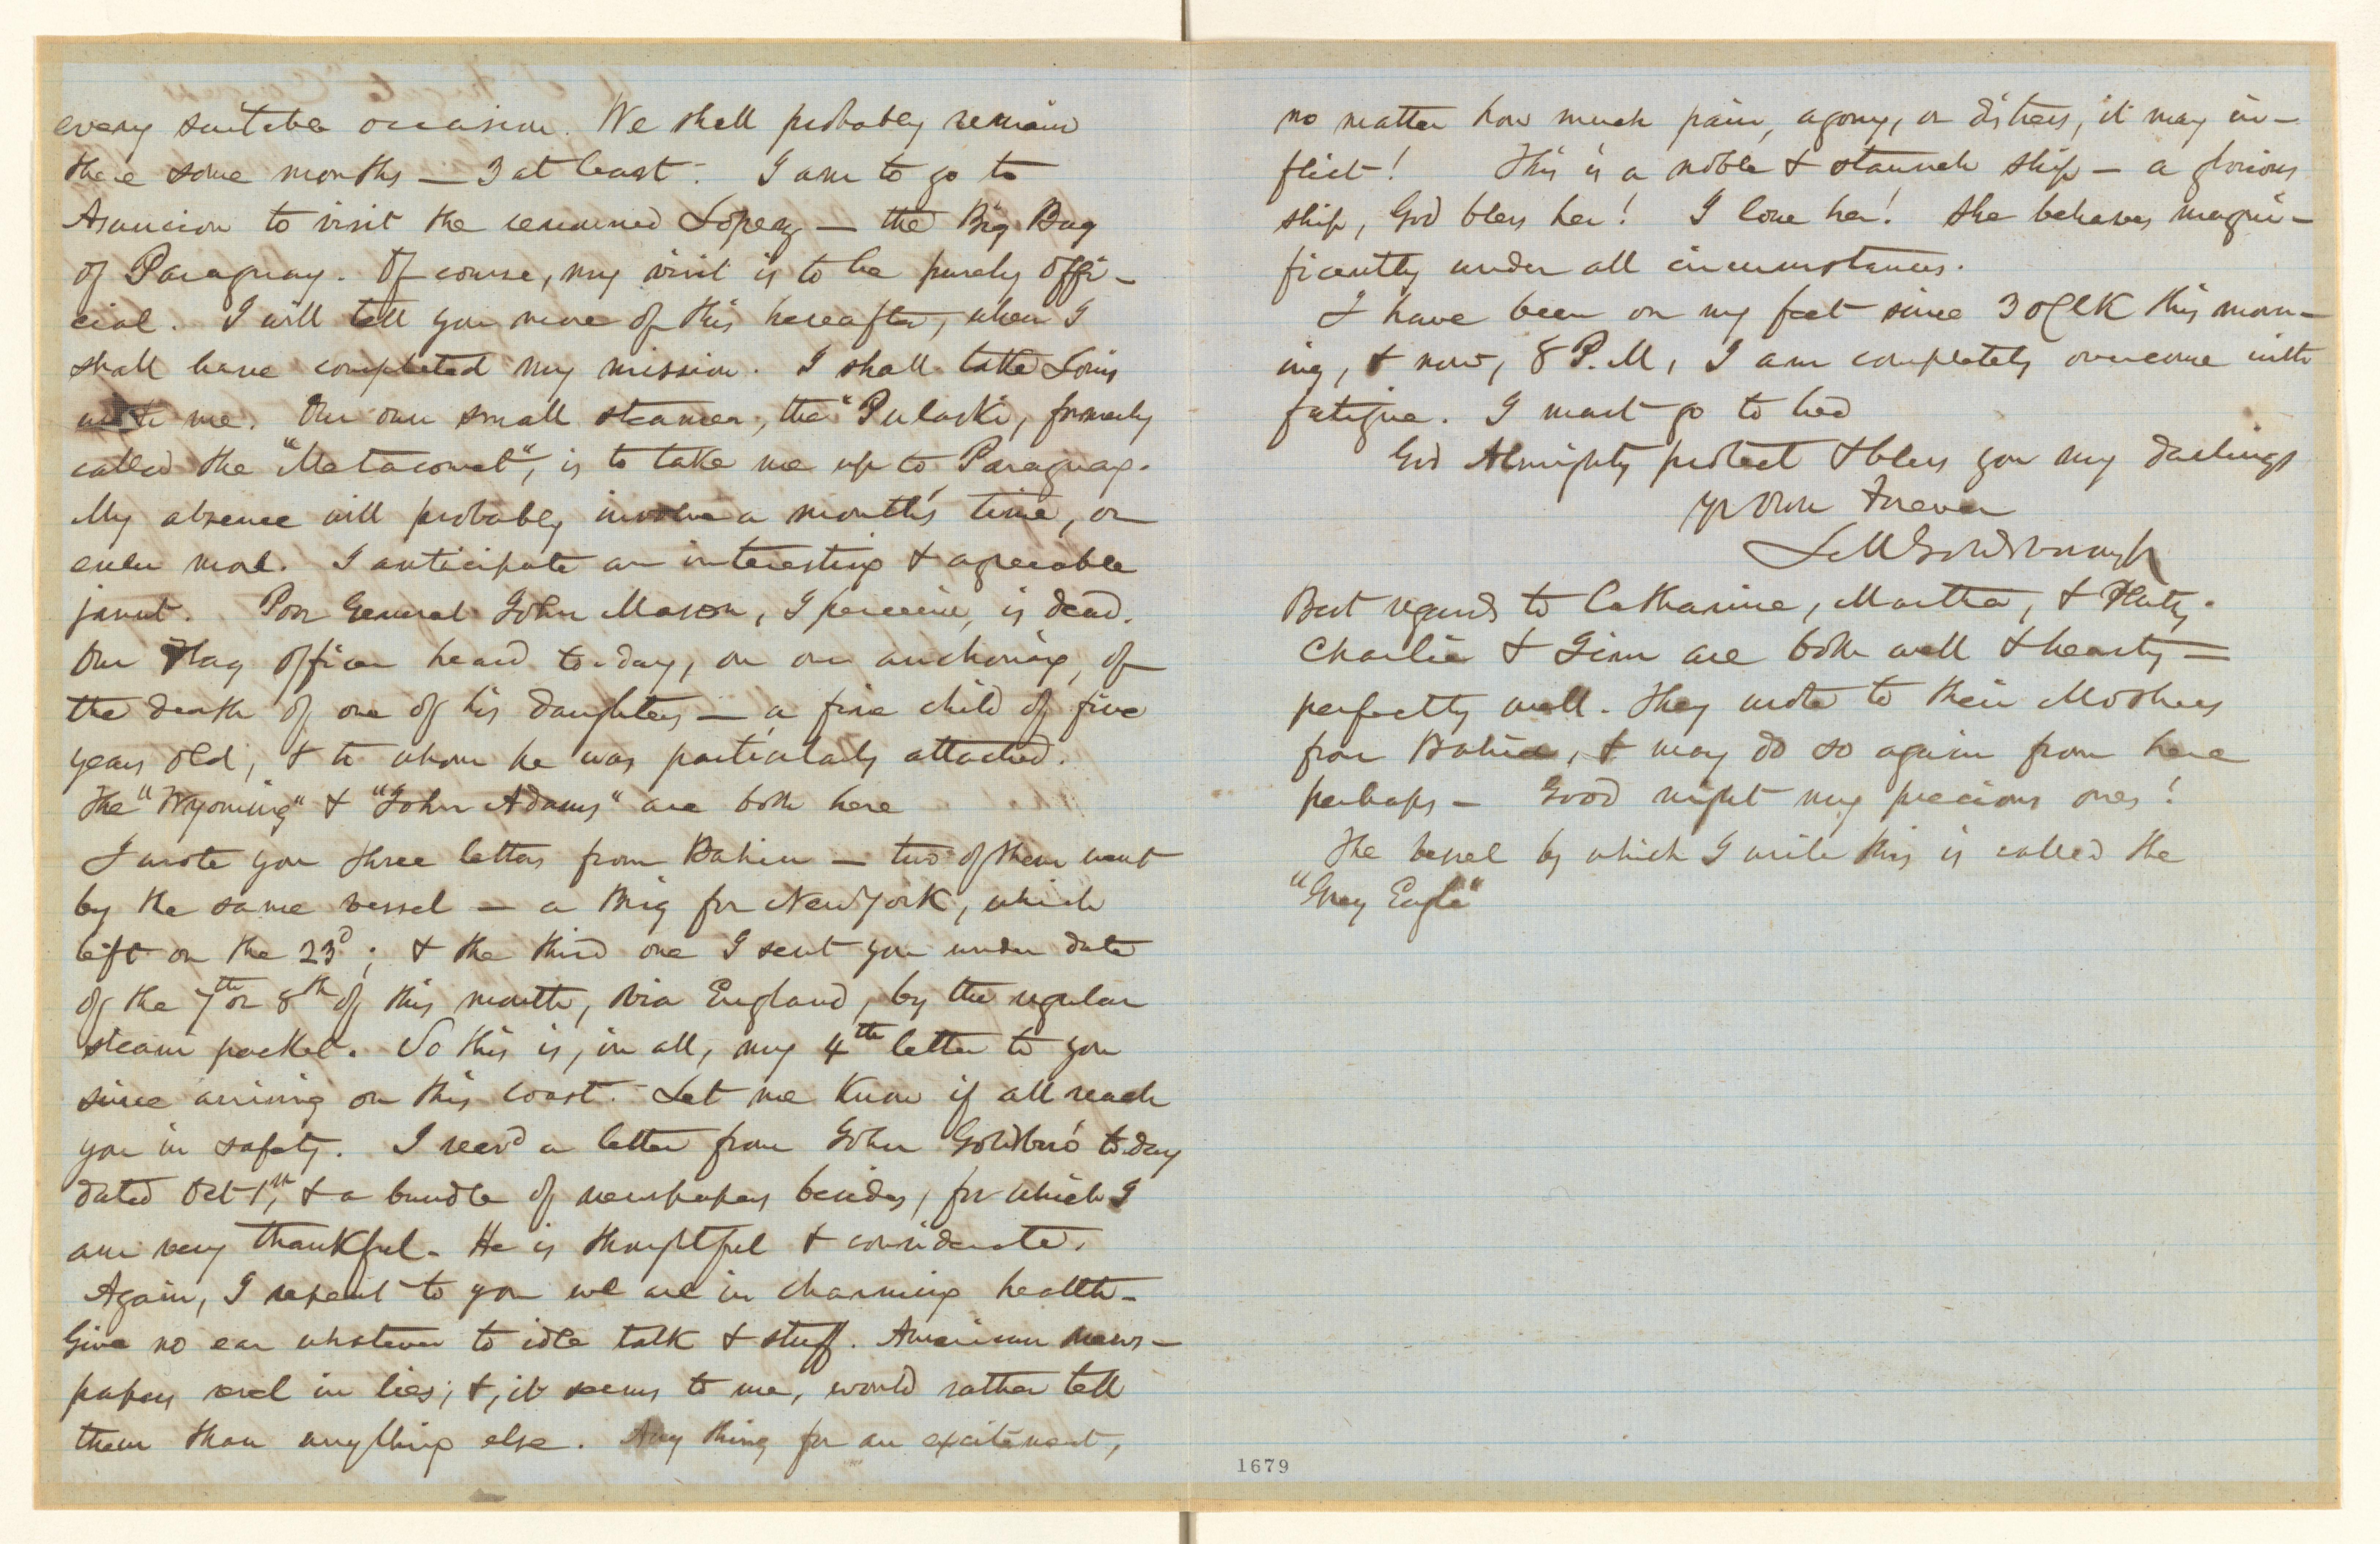 every suitable occasion. We shall probably remain
there some months — 3 at least. I am to go to
Asuncion to visit the renowned Lopez — the Big Bug
of Paraguay. Of course, my visit is to be purely offi-
cial. I will tell you more of this hereafter, when I
shall have completed my mission. I shall take Louis
with me. Our own small steamer, the "Pulaski, formerly
called the "Metacomet", is to take me up to Paraguay.
My absence will probably involve a month's time, or
even more. I anticipate an interesting & agreeable
jaunt. Poor General John Mason, I perceive, is dead.
Our Flag officer heard to-day, on our anchoring, of
the death of one of his daughters — a fine child of five
years old, & to whom he was particularly attached.
The "Wyoming" & "John Adams" are both here
I wrote you three letters from Bahia — two of them went
by the same vessel — a Brig for New York, which
left on the 23d; & the third one I sent you under date
of the 7th or 8th of this month, via England, by the regular
steam packet. So this is, in all, my 4th letter to you
since arriving on this coast. Let me know if all reach
you in safety. I recd a letter from John Goldsbro' to day
dated Oct 1st, & a bundle of newspapers besides, for which I
am very thankful. He is thoughtful & considerate.
Again, I repeat to you we are in charming health.
Give no ear whatever to idle talk & stuff. American news-
papers revel in lies; &, it seems to me, would rather tell
them than anything else. Any thing for an excitement,
no matter how much pain, agony, or distress, it may in-
flict! This is a noble & staunch ship — a glorious
ship, God bless her! I love her! She behaves magni-
ficently under all circumstances.
I have been on my feet since 3 oClk this morn-
ing, & now, 8 P.M, I am completely overcome with
fatigue. I must go to bed
God Almighty protect & bless you my darlings
Yr Own Forever
L M Goldsborough
Best regards to Catharine, Martha, &
Charlie & Jim are both well & hearty —
perfectly well. They wrote to their Mothers
from Bahia, & may do so again from here
perhaps — Good night my precious ones!
The vessel by which I write this is called the
"Grey Eagle"
1679